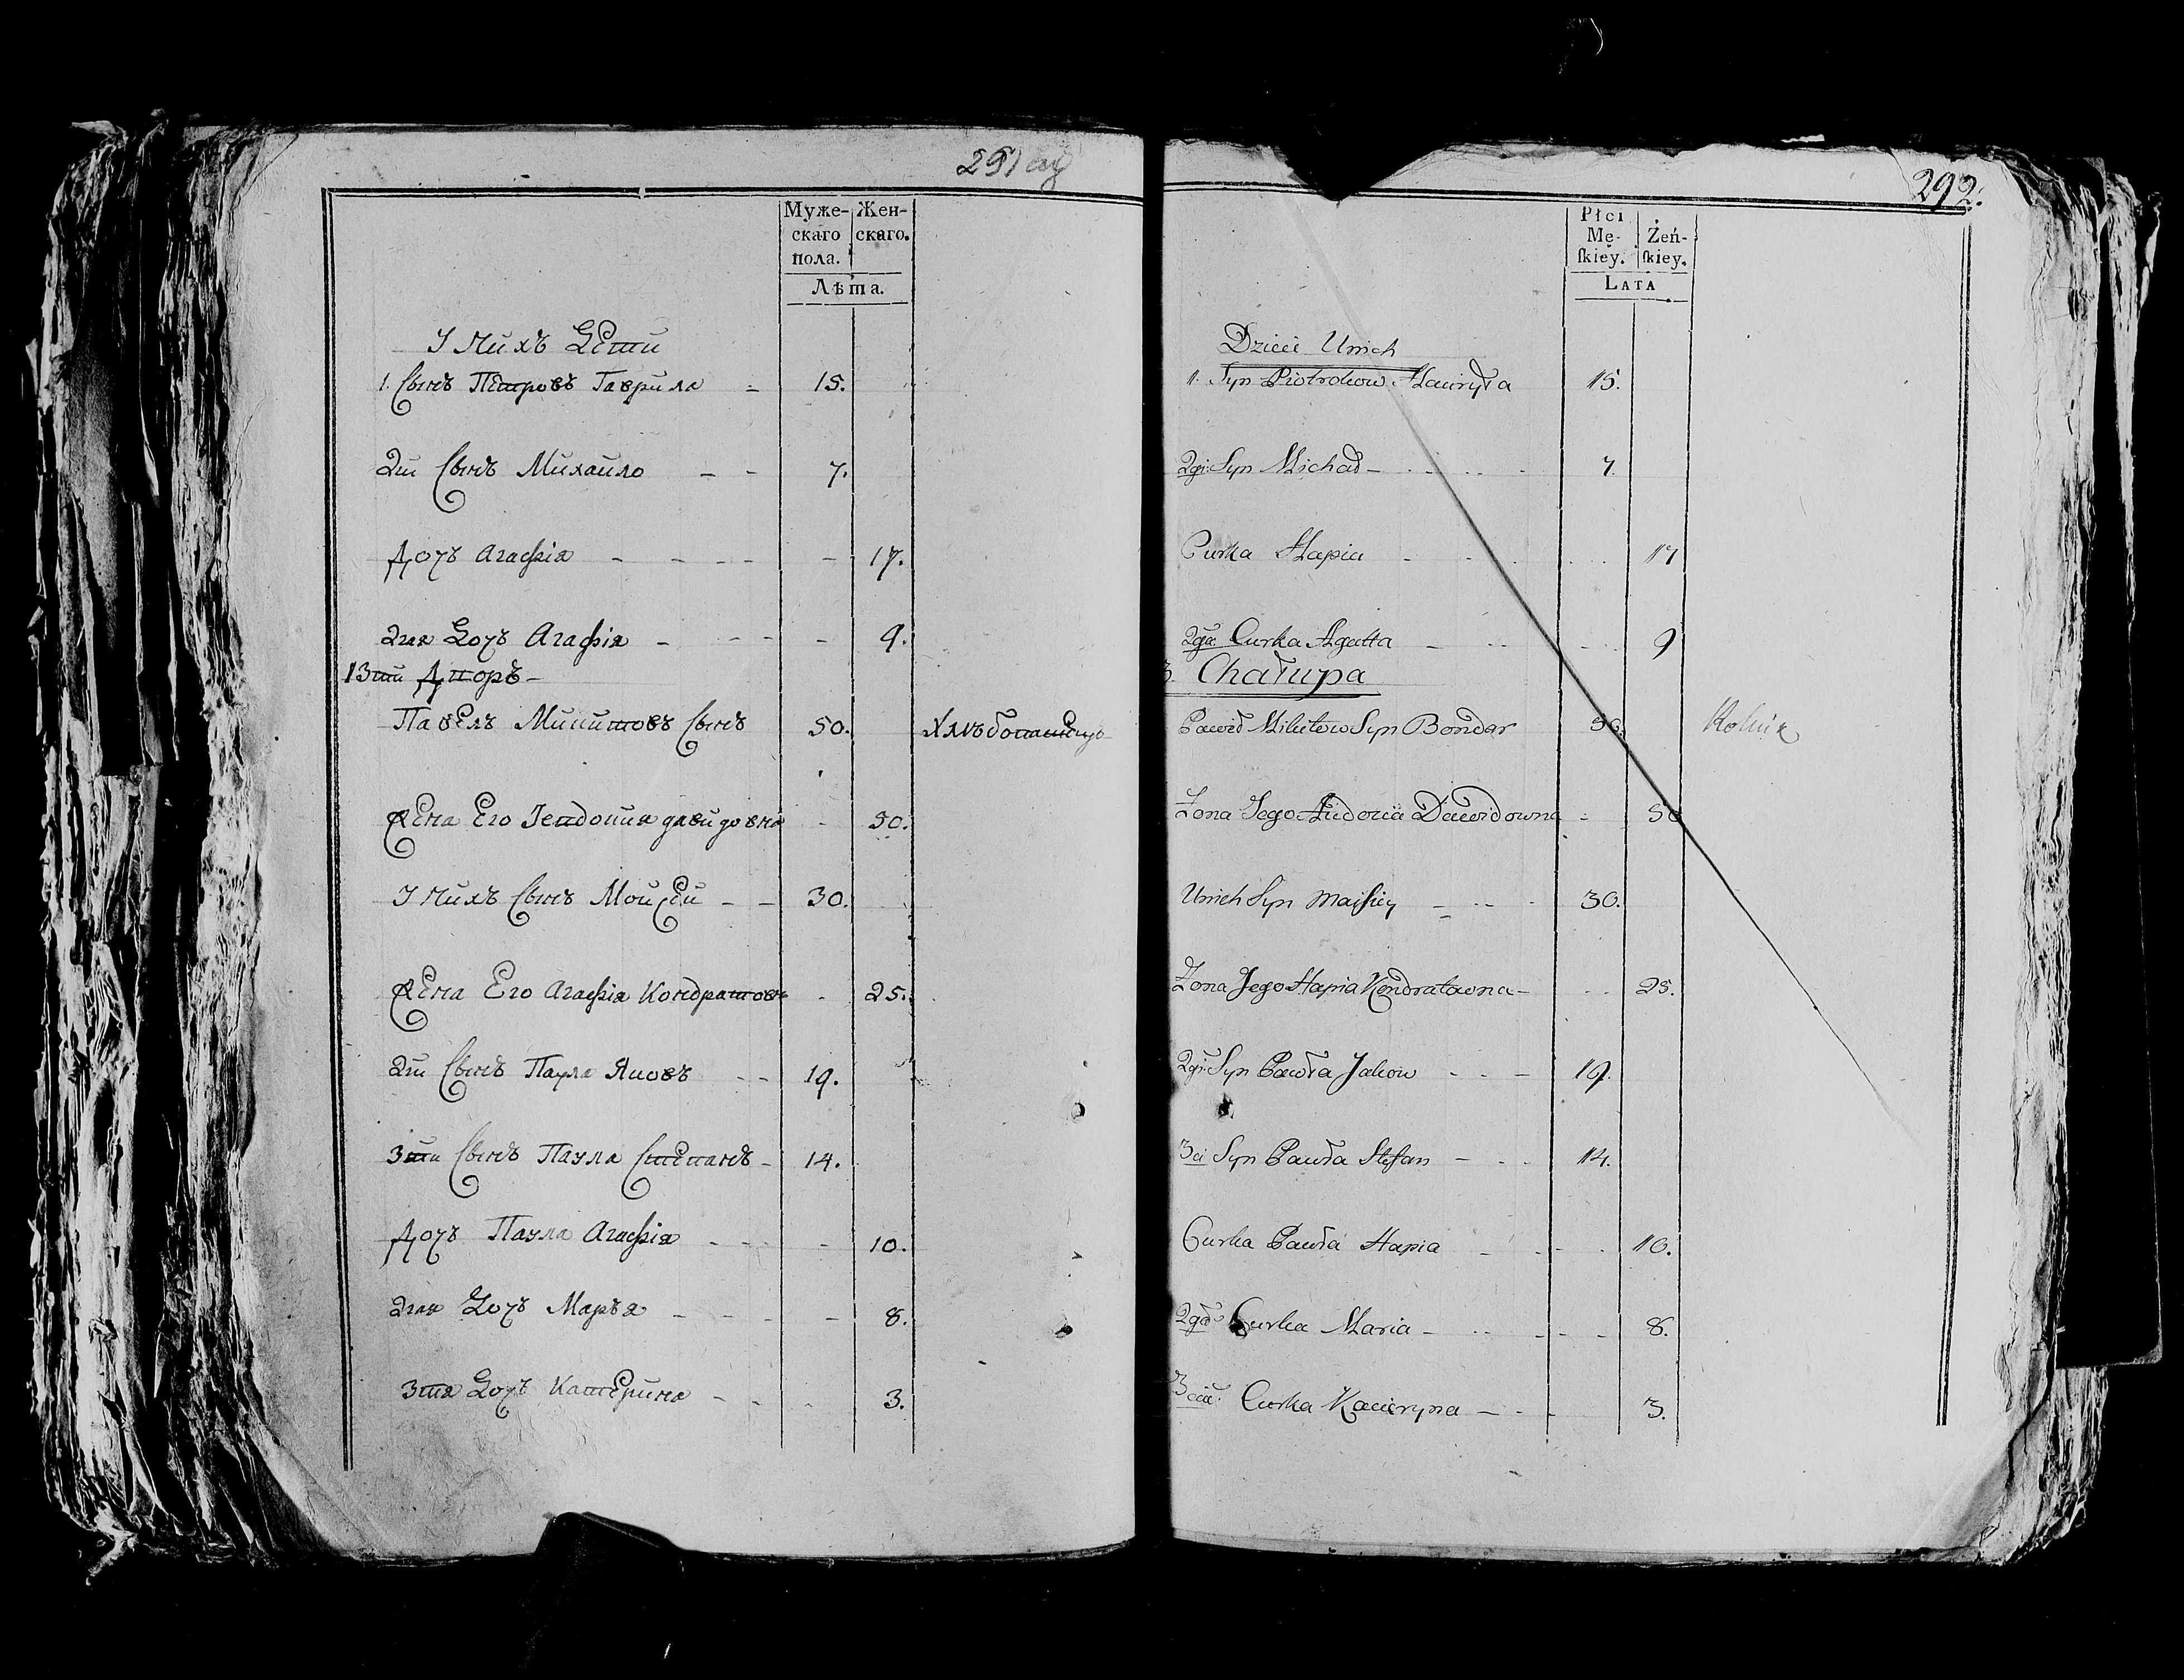 291 об
Муже-
скаго
пола.
Жен-
скаго.
Лѣта.
У нихъ дети
1. Сынъ Петровъ Гаврила 15.
2й Сынъ Михайло 7.
Дочъ Агафія 17.
2гая Дочъ Агафія 9.
13тй Дворъ
Павелъ Микитовъ Сынъ 50.
Жена Его давидовна 50.
У нихъ Сынъ Моисей 30.
Жена Его Агафія Кондратовн 25.
2й Сынъ Паула Яковъ 19.
3тй Сынъ Паула Степанъ 14.
Дочъ Паула Агафія 10.
2гая Дочъ Марья 8.
3тя Дочъ Катерина 3.
292.
Płci
Mę-
ſkiey.
Żeń-
ſkiey.
LATA
Dzieci Unich
1. Syn Piotrkow Hawryła 15.
2gi Syn Michał 7.
Curka Hapia 17
2ga Curka Agatta 9
Chałupa
Paweł Mikitow Syn Bondar 50. Rolnik
Zona Jego Dawidowna 50
Unich Syn Majsiey 30.
Zona Jego Hapia Kondratowna 25.
2gi Syn Pawła Jakow 19.
3ci Syn Pawła Stefan 14.
Curka Pawła Hapia 10.
2ga Curka Maria 8.
3cia Curka Kacieryna 3.